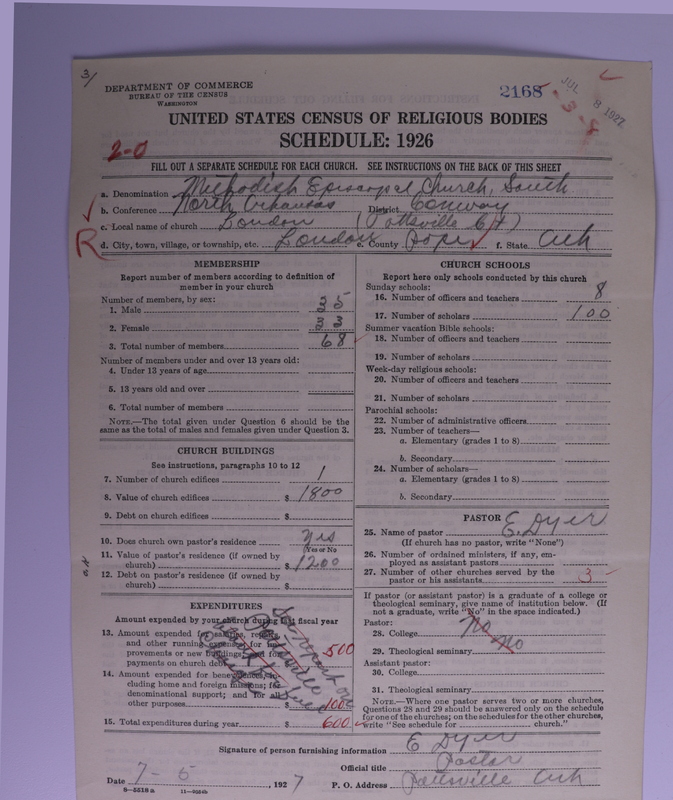 3/
DEPARTMENT OF COMMERCE
BUREAU OF THE CENSUS
WASHINGTON
2168
JUL 8 1927
-3-8
UNITED STATES CENSUS OF RELIGIOUS BODIES
SCHEDULE: 1926
2-0
FILL OUT A SEPARATE SCHEDULE FOR EACH CHURCH. SEE INSTRUCTIONS ON THE BACK OF THIS SHEET
a. Denomination Methodist Episcopal Church, South
b. Conference North Arkansas District Conway
c. Local name of church London (Pottsville Ct)
R d. City, town, village, or township, etc. London e. County Pope f. State Ark
MEMBERSHIP
Report number of members according to definition of
member in your church
Number of members, by sex:
1. Male
2. Female
3. Total number of members 68
Number of members under and over 13 years old:
4. Under 13 years of age
5. 13 years old and over
6. Total number of members
NOTE.—The total given under Question 6 should be the
same as the total of males and females given under Question 3.
CHURCH BUILDINGS
See instructions, paragraphs 10 to 12
7. Number of church edifices 1
8. Value of church edifices $ 1800
9. Debt on church edifices $
10. Does church own pastor's residence yes
(Yes or No)
11. Value of pastor's residence (if owned by
church) $ 1200
12. Debt on pastor's residence (if owned by
church) $
EXPENDITURES
Amount expended by your church during last fiscal year
13. Amount expended for salaries, repairs,
and other running expenses; for im-
provements or new buildings; and for
payments on church debt $ 500
14. Amount expended for benevolences, in-
cluding home and foreign missions; for
denominational support; and for all
other purposes $ 100
15. Total expenditures during year $ 600
CHURCH SCHOOLS
Report here only schools conducted by this church
Sunday schools:
16. Number of officers and teachers 8
17. Number of scholars 100
Summer vacation Bible schools:
18. Number of officers and teachers
19. Number of scholars
Week-day religious schools:
20. Number of officers and teachers
21. Number of scholars
Parochial schools:
22. Number of administrative officers
23. Number of teachers—
a. Elementary (grades 1 to 8)
b. Secondary
24. Number of scholars—
a. Elementary (grades 1 to 8)
b. Secondary
PASTOR
25. Name of pastor E. Dyer
(If church has no pastor, write "None")
26. Number of ordained ministers, if any, em-
ployed as assistant pastors
27. Number of other churches served by the
pastor or his assistants 3
If pastor (or assistant pastor) is a graduate of a college or
theological seminary, give name of institution below. (If
not a graduate, write "No" in the space indicated.)
Pastor:
28. College No
29. Theological seminary No
Assistant pastor:
30. College
31. Theological seminary
NOTE.—Where one pastor serves two or more churches,
Questions 28 and 29 should be answered only on the schedule
for one of the churches; on the schedules for the other churches,
write "See schedule for church."
Signature of person furnishing information E Dyer
Official title Pastor
Date 7-5, 1927 P. O. Address Pottsville Ark
6—5518 a